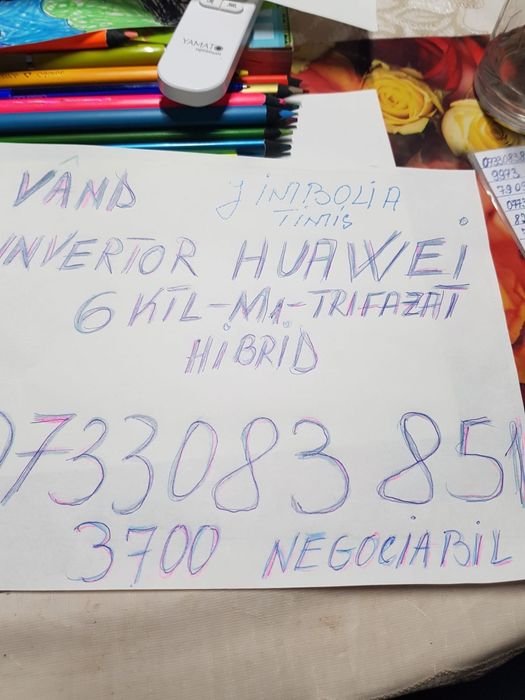 YAMATO
VÂND JIMBOLIA
TIMIȘ
INVERTOR HUAWEI
6 KTL-M1-TRIFAZAT
HIBRID
0733083 851
3700 NEGOCIABIL
0733083
9973